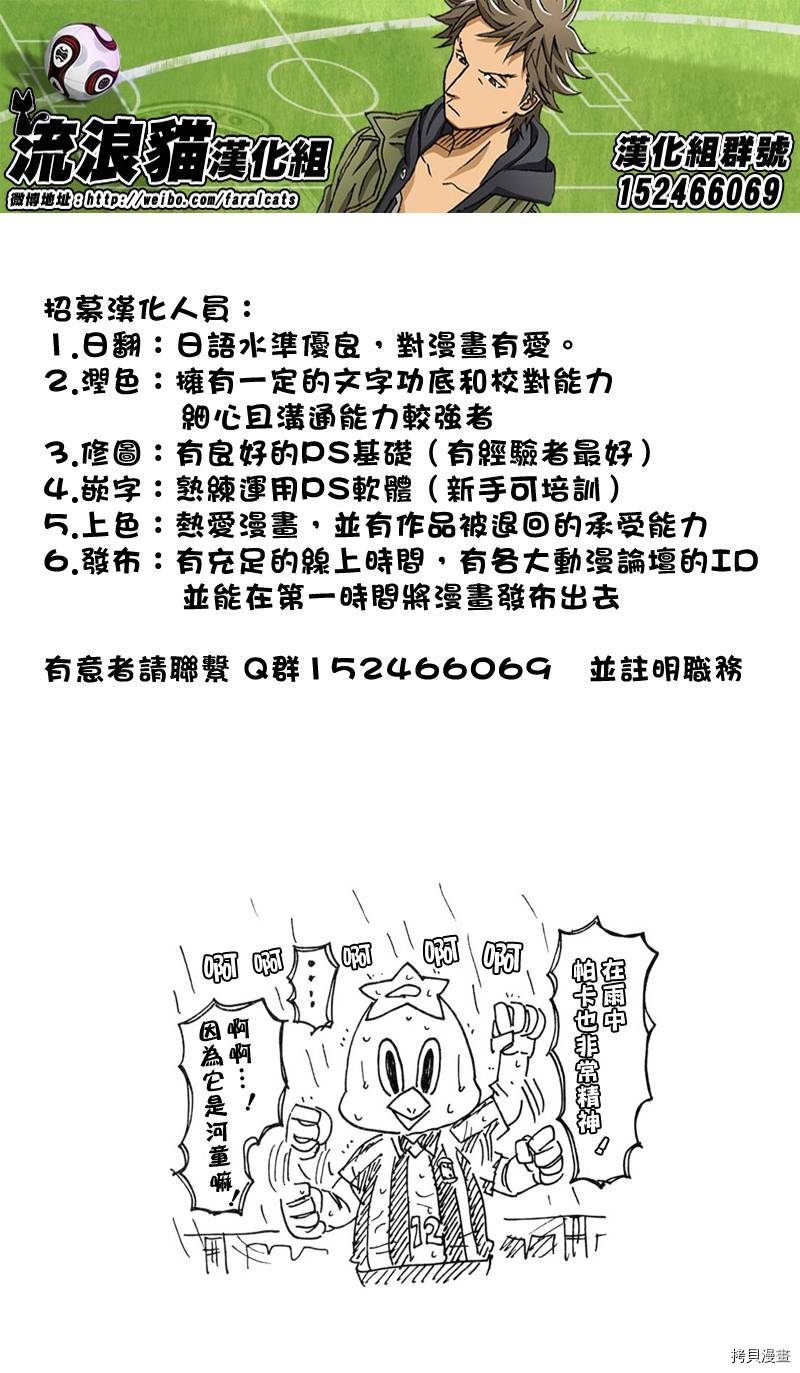 流浪貓漢化組
微博地址：http://weibo.com/faralcats
漢化組群號
152466069
招募漢化人員：
1.日翻：日語水準優良，對漫畫有愛。
2.潤色：擁有一定的文字功底和校對能力
細心且溝通能力較強者
3.修圖：有良好的PS基礎（有經驗者最好）
4.嵌字：熟練運用PS軟體（新手可培訓）
5.上色：熱愛漫畫，並有作品被退回的承受能力
6.發布：有充足的線上時間，有各大動漫論壇的ID
並能在第一時間將漫畫發布出去
有意者請聯繫 Q群152466069 並註明職務
在雨中
帕卡也非常精神！
啊
啊
啊
啊
啊
……
啊啊…！
因為它是河童嘛！
12
拷貝漫畫